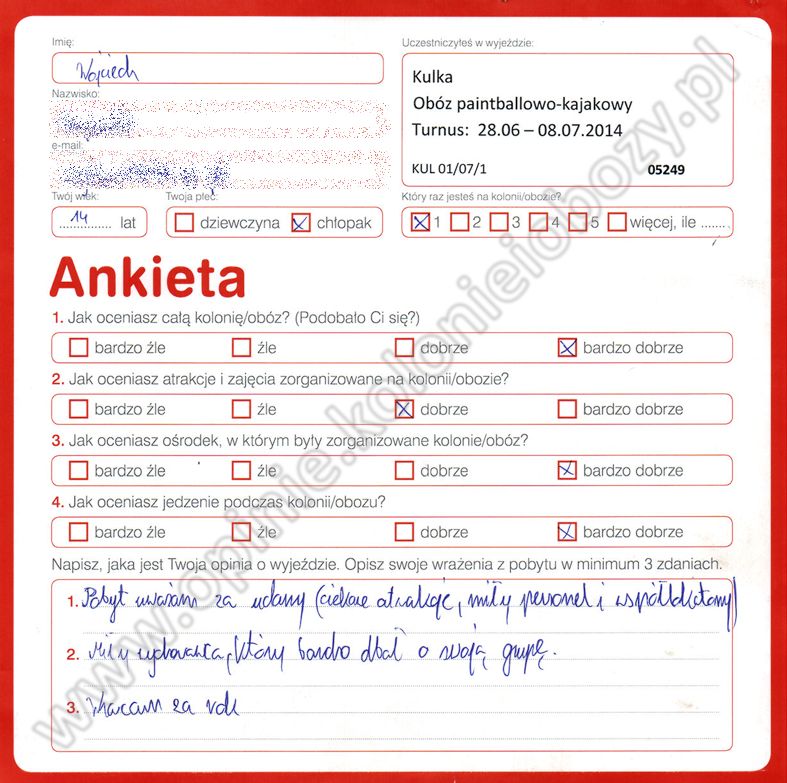 Imię:
Uczestniczyłeś w wyjeździe:
Wojciech
Kulka
Nazwisko:
Obóz paintballowo-kajakowy
Turnus: 28.06 – 08.07.2014
e-mail:
KUL 01/07/1 05249
Twój wiek: Twoja płeć: Który raz jesteś na kolonii/obozie?
14 lat dziewczyna chłopak 1 2 3 4 5 więcej, ile .......
Ankieta
1. Jak oceniasz całą kolonię/obóz? (Podobało Ci się?)
bardzo źle źle dobrze bardzo dobrze
2. Jak oceniasz atrakcje i zajęcia zorganizowane na kolonii/obozie?
bardzo źle źle dobrze bardzo dobrze
3. Jak oceniasz ośrodek, w którym były zorganizowane kolonie/obóz?
bardzo źle źle dobrze bardzo dobrze
4. Jak oceniasz jedzenie podczas kolonii/obozu?
bardzo źle źle dobrze bardzo dobrze
Napisz, jaka jest Twoja opinia o wyjeździe. Opisz swoje wrażenia z pobytu w minimum 3 zdaniach.
1. Pobyt uważam za udany (ciekawe atrakcje, miły personel i
2. Miły wychowawca, który bardzo dbał o swoją grupę.
3. Wracam za rok
www.opinie.kolonieiobozy.pl